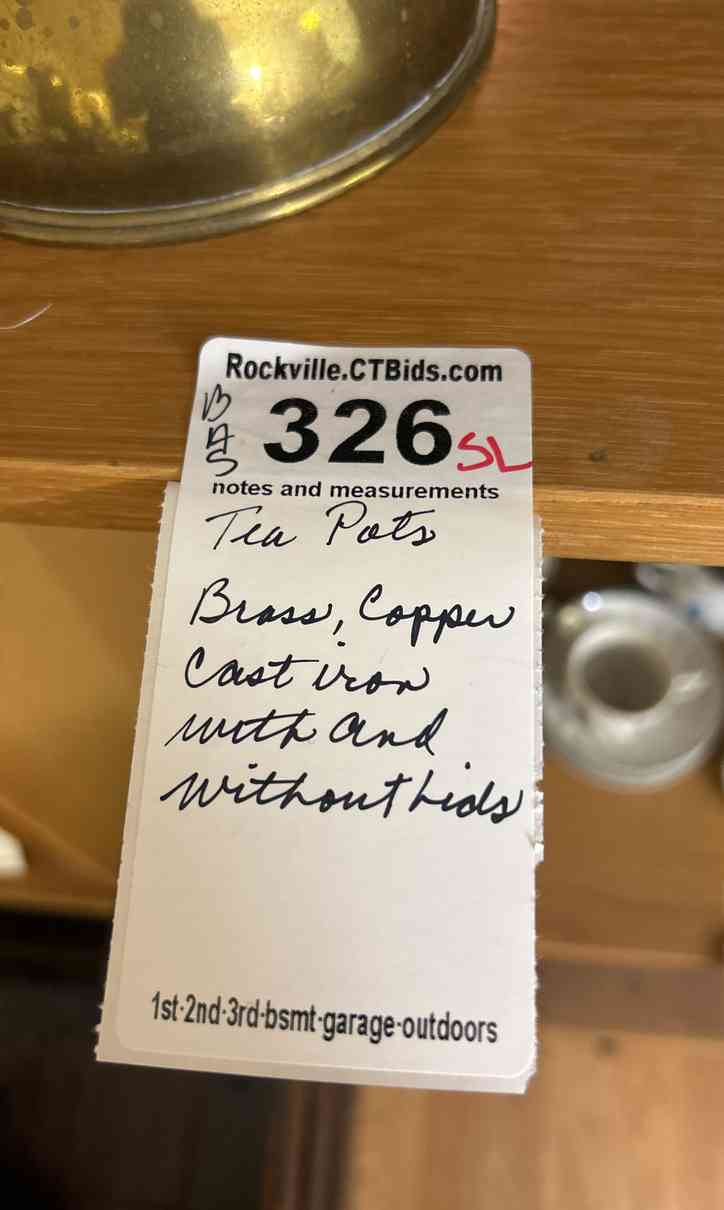 Rockville.CTBids.com
BAS
326 SL
notes and measurements
Tea Pots
Brass, Copper
Cast iron
with and
without Lids
1st-2nd-3rd-bsmt-garage-outdoors